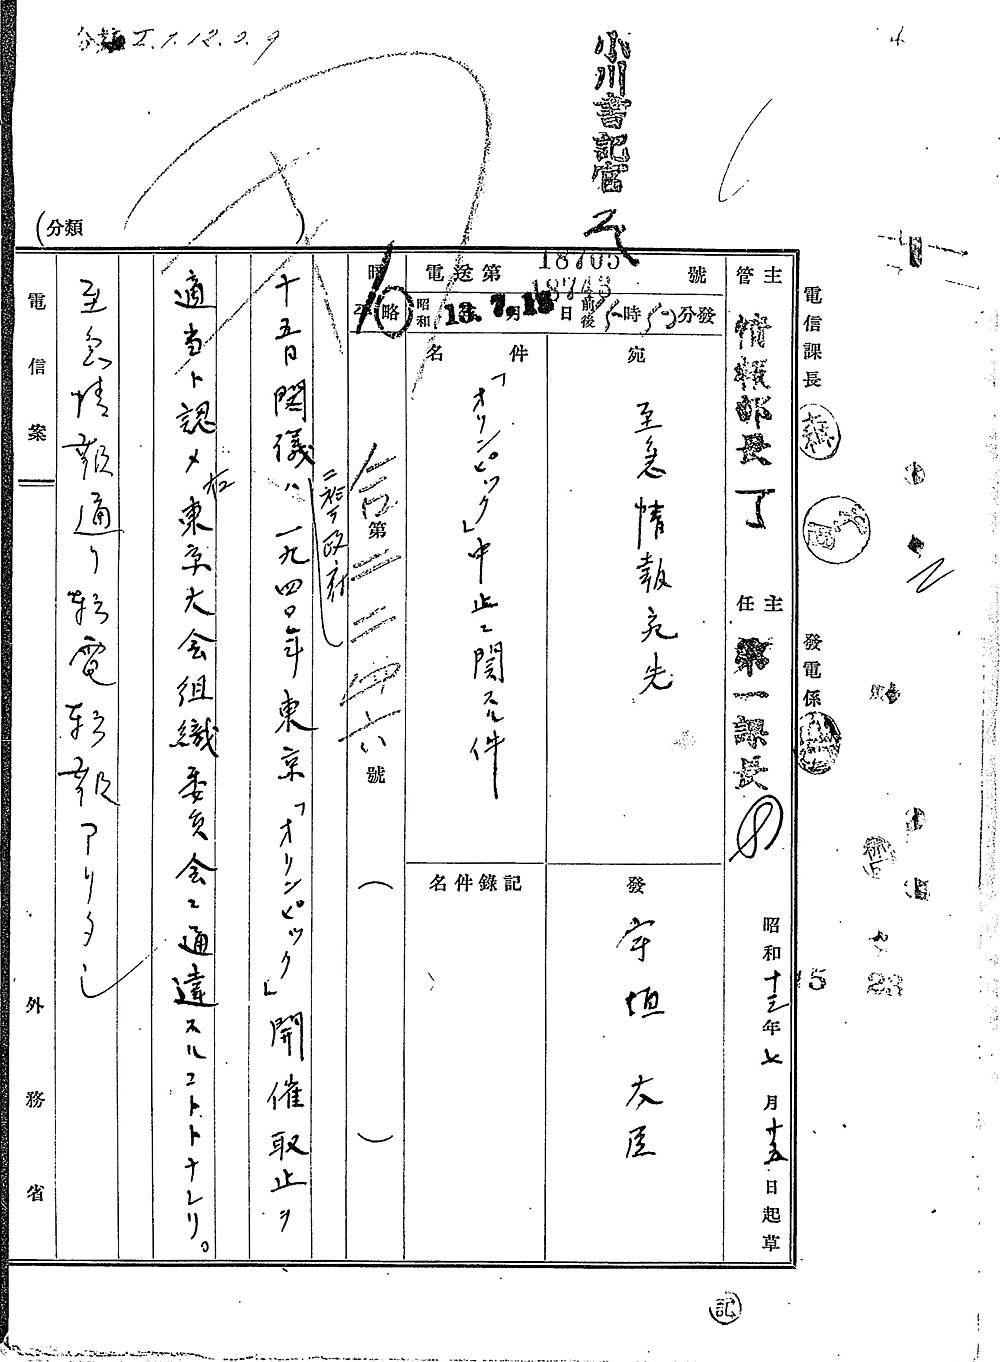 分類 I.1.12.0.9
小川書記官
(分類 )
電信課長
發電係
主管 情報部長
主任 第一課長
昭和十三年七月十五日起草
電送第 18705 號
18743
昭和 13.7.15 日 前後 時 分發
宛 至急情報宛先
發 宇垣大臣
件名 「オリンピック」中止ニ関スル件
記錄件名
暗 略
合第二二四六號 ( )
十五日閣議ハ一九四〇年東京「オリンピック」開催取止ヲ
ニ於テ政府
適当ト認メ右東京大会組織委員会ニ通達スルコトトナレリ。
至急情報通リ転電転報アリタシ
電信案
外務省
記